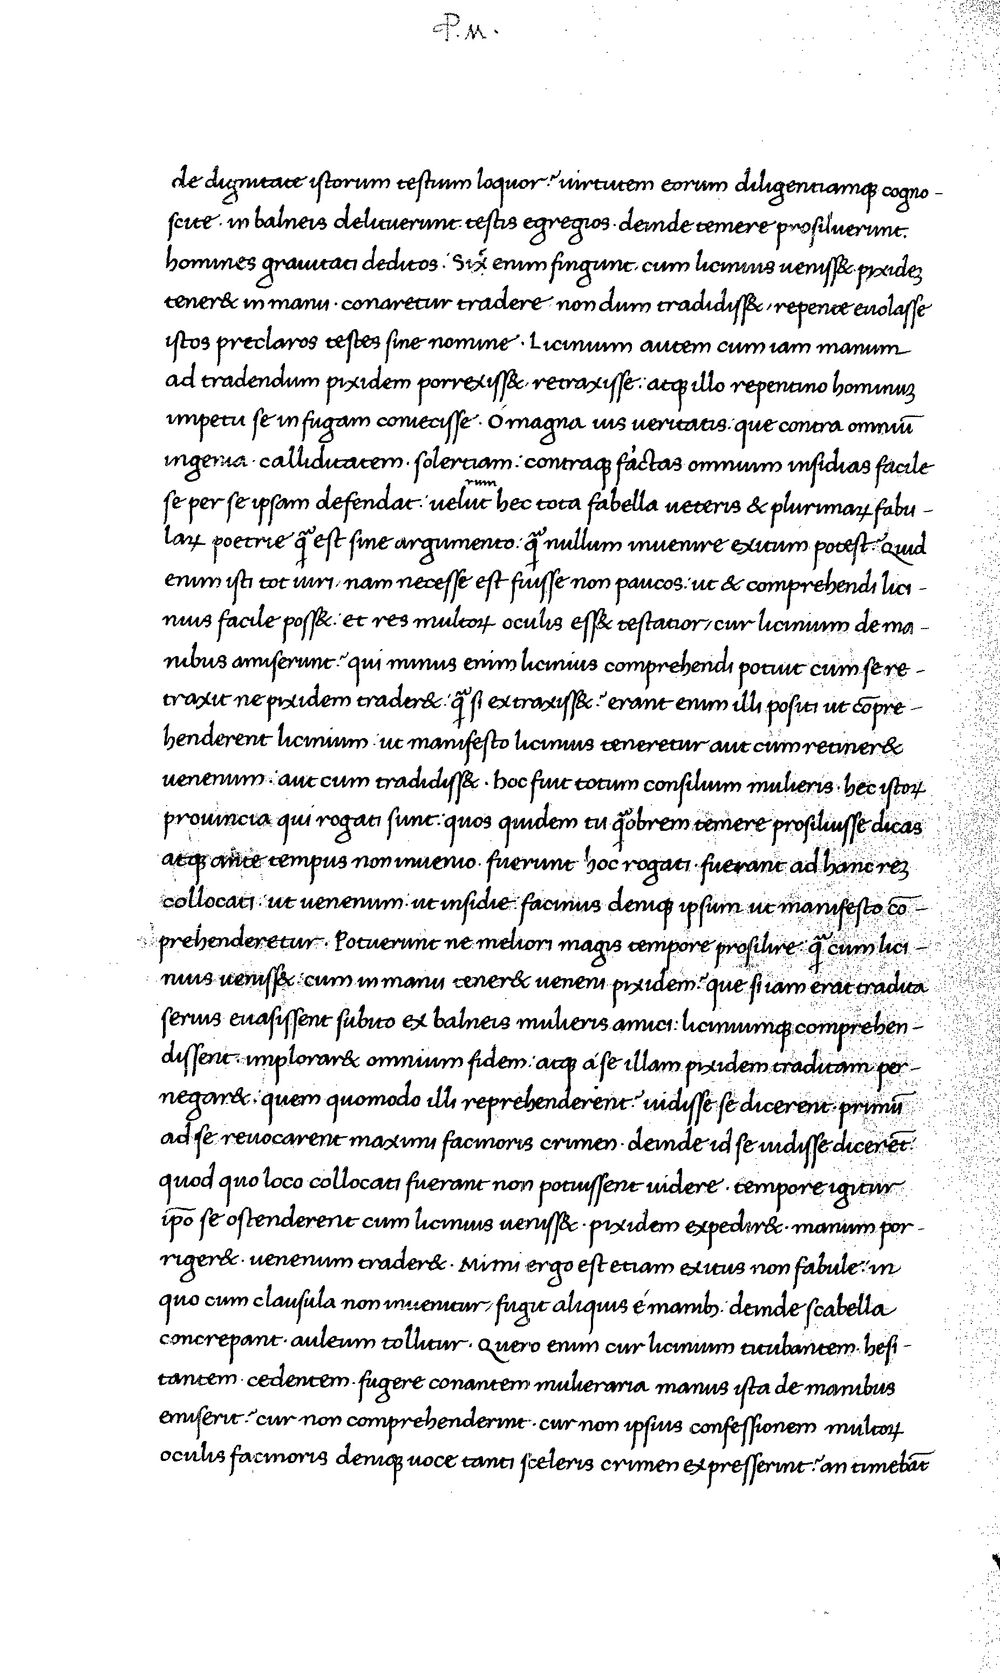 P. M.
de dignitate istorum testium loquor? uirtutem eorum diligentiamq; cogno-
scite. in balneis delituerunt: testis egregios. deinde temere prosiluerunt.
homines grauitati deditos. Six̃ enim fingunt. cum licinius uenisset. pixidẽ
teneret in manu. conaretur tradere non dum tradidisset, repente euolasse
istos preclaros testes sine nomine. Licinium autem cum iam manum
ad tradendum pixidem porrexisset, retraxisse: atq; illo repentino hominuʒ
impetu se in fugam coniecisse. O magna uis ueritatis: que contra omniũ
ingenia. calliditatem. solertiam: contraq; fictas omnium insidias facile
se per se ipsam defendat: uelut hec tota fabella ueteris & plurimaꝝ fabu-
laꝝ poetrie q̃ est sine argumento: q̃ nullum inuenire exitum potest? Quid
enim isti tot uiri, nam necesse est fuisse non paucos: ut & comprehendi lici-
nius facile posset: et res multoꝝ oculis esset testatior, cur licinium de ma-
nibus amiserunt? qui minus enim licinius comprehendi potuit cum se re-
traxit ne pixidem traderet: q̃ si extraxisset? erant enim illi positi ut cõpre-
henderent licinium. ut manifesto licinius teneretur aut cum retineret
uenenum. aut cum tradidisset. hoc fuit totum consilium mulieris. hec istoꝝ
prouincia qui rogati sunt: quos quidem tu q̃obrem temere prosiluisse dicas
atq; ante tempus non inuenio. fuerunt hoc rogati. fuerant ad hanc reʒ
collocati: ut uenenum. ut insidie. facinus deniq; ipsum ut manifesto cõ-
prehenderetur. Potuerunt ne meliori magis tempore prosilire: q̃ cum lici-
nius uenisset: cum in manu teneret ueneni pixidem? que si iam erat tradita
serius euasissent subito ex balneis mulieris amici: liciniumq; comprehen-
dissent: imploraret omnium fidem. atq; a se illam pixidem traditam per-
negaret. quem quomodo illi reprehenderent? uidisse se dicerent. primũ
ad se reuocarent maximi facinoris crimen. deinde id se uidisse dicerẽt.
quod quo loco collocati fuerant non potuissent uidere. tempore igitur
ip̃o se ostenderent cum licinius uenisset. pixidem expediret. manum por-
rigeret. uenenum traderet. Mimi ergo est etiam exitus non fabule: in
quo cum clausula non inuenitur, fugit aliquis e manibꝫ. deinde scabella
concrepant. auleum tollitur. Quero enim cur licinium titubantem. hesi-
tantem. cedentem. fugere conantem mulieraria manus ista de manibus
emiserit? cur non comprehenderint. cur non ipsius confessionem multoꝝ
oculis facinoris denique uoce tanti sceleris crimen expresserint? an timebãt